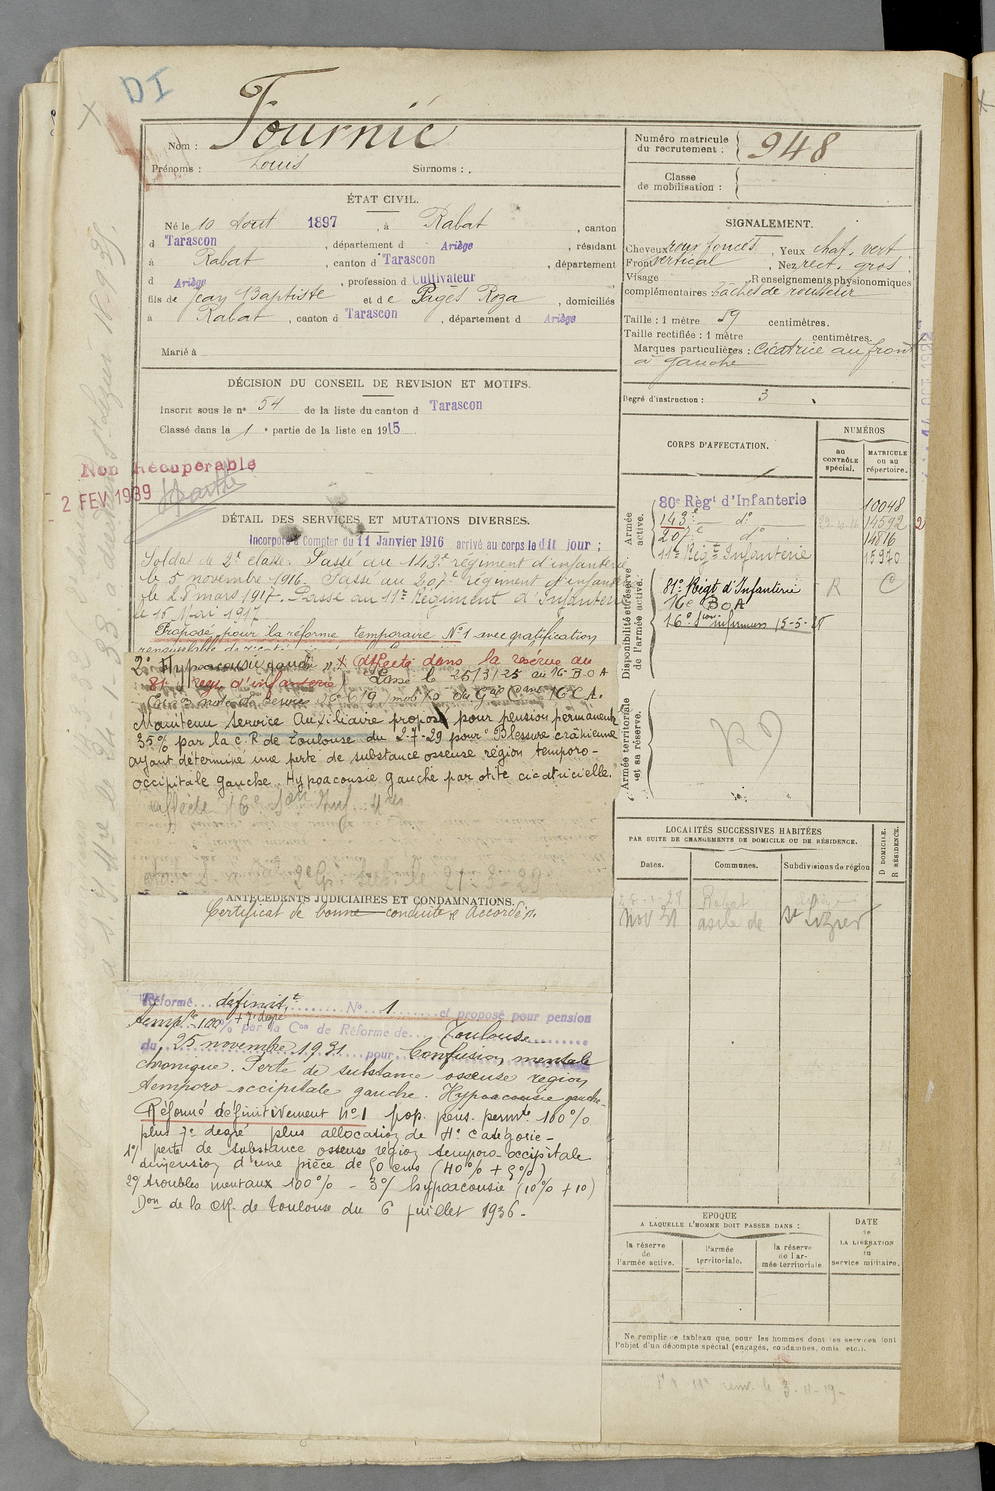 DI
Nom : Fournié
Prénoms : Louis Surnoms : .
ÉTAT CIVIL.
Né le 10 Aout 1897, à Rabat, canton
d Tarascon, département d Ariège, résidant
à Rabat, canton d Tarascon, département
d Ariège, profession d Cultivateur
fils de Jean Baptiste et de Pagès Roza, domiciliés
à Rabat, canton d Tarascon, département d Ariège
Marié à
DÉCISION DU CONSEIL DE REVISION ET MOTIFS.
Inscrit sous le n° 54 de la liste du canton d Tarascon
Classé dans la 1e partie de la liste en 1915
Non Récupérable
2 FEV 1939
DÉTAIL DES SERVICES ET MUTATIONS DIVERSES.
Incorporé à Compter du 11 Janvier 1916 arrivé au corps le dit jour ;
Soldat de 2e classe. Passé au 143e régiment d'infanterie
le 5 novembre 1916. Passé au 207e régiment d'infanterie
le 28 mars 1917. Passé au 11e Régiment d'Infanterie
le 16 Mai 1917
Proposé pour la réforme temporaire N°1 avec gratification
2° Hypoacousie gauche Affecté dans la réserve au
81e regt d'infanterie Passé le 25/3/25 au 16e B O A
Maintenu Service Auxiliaire proposé pour pension permanente
35% par la C. R de Toulouse du 2-7-29 pour : Blessure crânienne
ayant déterminé une perte de substance osseuse région temporo-
occipitale gauche. Hypoacousie gauche par otite cicatricielle.
ANTÉCÉDENTS JUDICIAIRES ET CONDAMNATIONS.
Certificat de bonne conduite Accordé.
Réformé définitt N° 1 et proposé pour pension
temp. 100% + 7e degré par la Con de Réforme de Toulouse
du 25 novembre 1931 pour Confusion mentale
chronique. Perte de substance osseuse region
temporo-occipitale gauche. Hypoacousie gauche.
Réformé définitivement N°1 prop. pens. permte 100%
plus 7e degré plus allocation de 4e catégorie-
1°/ perte de substance osseuse région temporo-occipitale
dimension d'une pièce de 50 cms (40% + 5%)
2°/ troubles mentaux 100% - 3°/ hypoacousie (10% + 10)
Don de la CR. de Toulouse du 6 juillet 1936-
Numéro matricule
du recrutement : 948
Classe
de mobilisation :
SIGNALEMENT.
Cheveux roux foncés, Yeux chat. vert
Front vertical, Nez rect. gros
Visage Renseignements physionomiques
complémentaires : Tâches de rousseur
Taille : 1 mètre 59 centimètres.
Taille rectifiée : 1 mètre centimètres.
Marques particulières : Cicatrice au front
à gauche
Degré d'instruction : 3
CORPS D'AFFECTATION.
NUMÉROS
au
CONTRÔLE
spécial.
MATRICULE
ou au
répertoire.
Armée
active.
80e Régt d'Infanterie 10048
143e do 14592
207e do 14816
11e Régt Infanterie 15970
Disponibilité et réserve
de l'armée active.
81e Régt d'Infanterie R C
16e B O A
16e Son infirmiers 15-5-
Armée territoriale
et sa réserve.
LOCALITÉS SUCCESSIVES HABITÉES
PAR SUITE DE CHANGEMENTS DE DOMICILE OU DE RÉSIDENCE.
Dates. Communes. Subdivisions de région
D DOMICILE.
R RÉSIDENCE.
Rabat
Nov 31 asile de St Lizier
EPOQUE
A LAQUELLE L'HOMME DOIT PASSER DANS :
la réserve
de
l'armée active.
l'armée
territoriale.
la réserve
de l'ar-
mée territoriale.
DATE
de
LA LIBÉRATION
du
service militaire.
Ne remplir ce tableau que pour les hommes dont les services font
l'objet d'un décompte spécial (engagés, condamnés, omis, etc.).